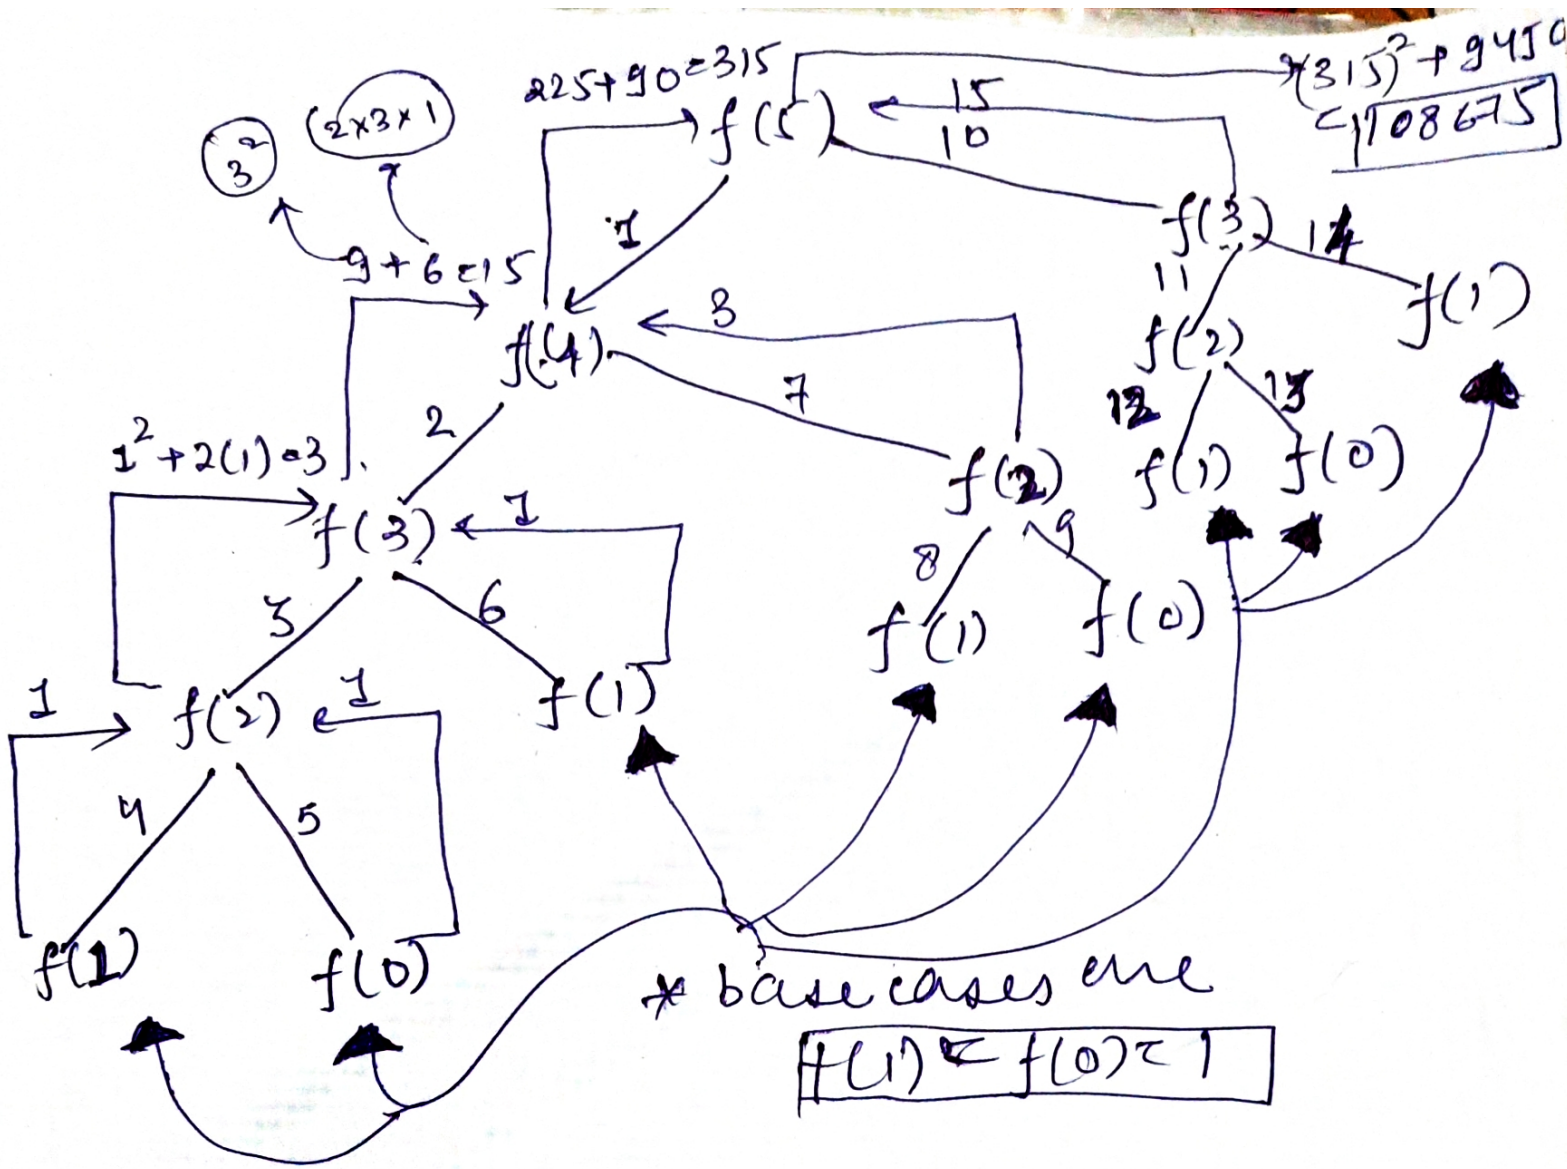 225+90=315
(315)² + 9450
= 108675
3²
(2×3×1)
f(5)
15
10
1
f(3)
14
9+6=15
11
f(1)
f(4)
3
f(2)
7
12
13
2
1²+2(1)=3
f(2)
f(1)
f(0)
f(3)
1
8
9
3
6
f(1)
f(0)
1
f(2)
1
f(1)
4
5
f(1)
f(0)
* base cases are
f(1) = f(0) = 1